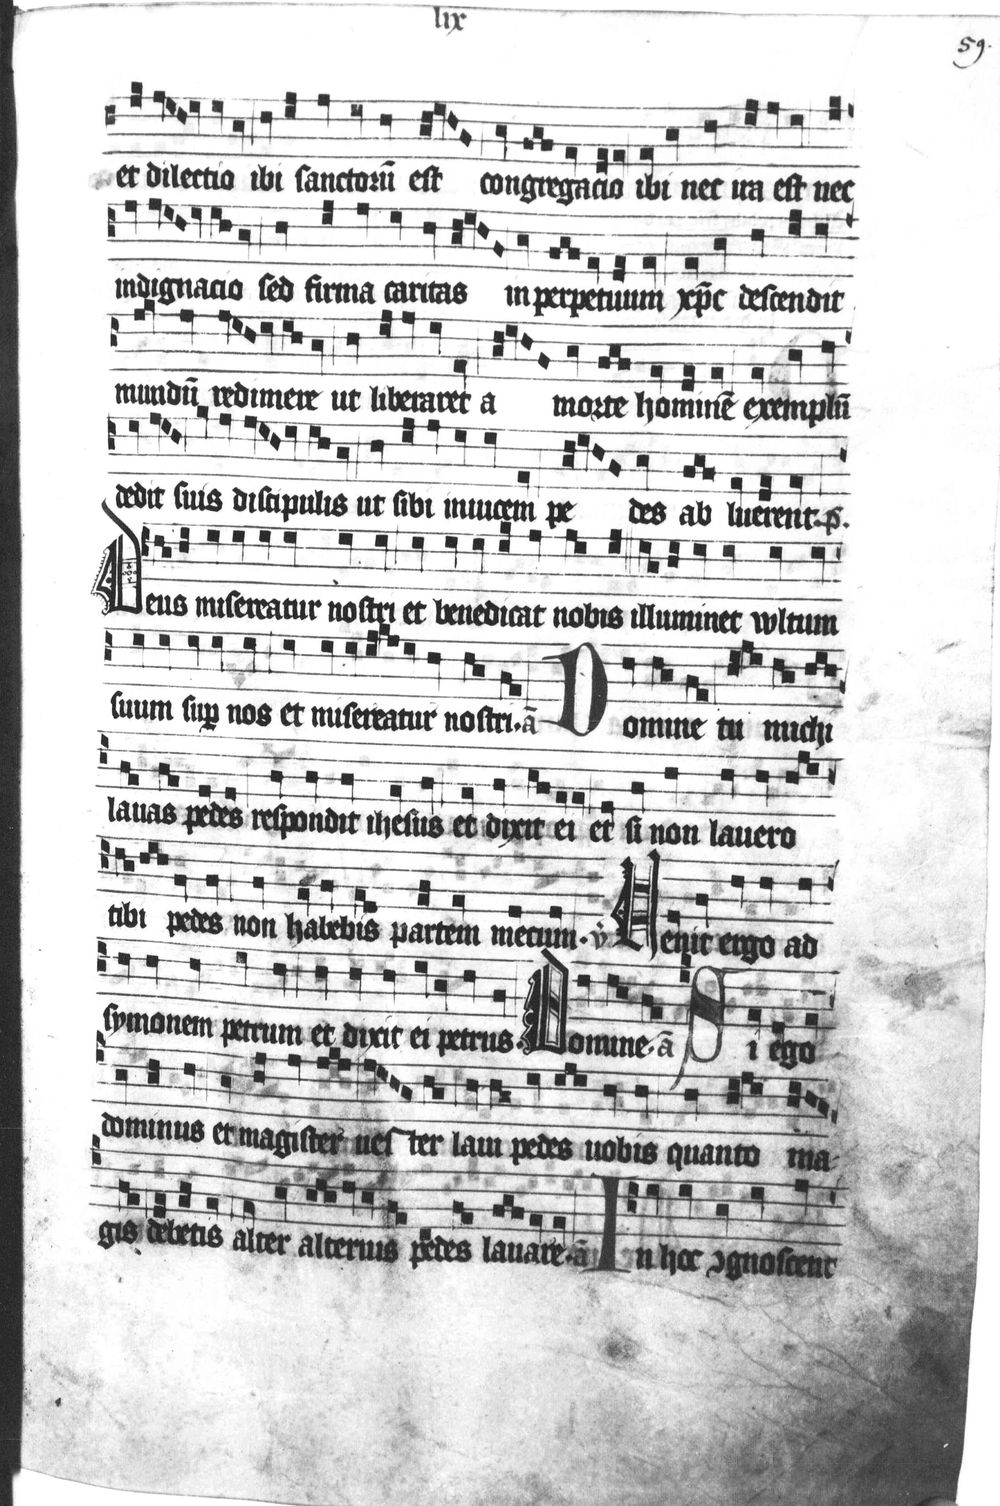 lix
59.
et dilectio ibi sanctorū est congregacio ibi nec ira est nec
indignacio sed firma caritas in perpetuum xp̄c descendit
mundū redimere ut liberaret a morte hominē exemplū
dedit suis discipulis ut sibi inuicem pedes ab luerent. p̄.
Deus misereatur nostri et benedicat nobis illuminet wltum
suum suꝑ nos et misereatur nostri. ā Domine tu michi
lauas pedes respondit ihesus et dixit ei et si non lauero
tibi pedes non habebis partem mecum. v̄ Uenit ergo ad
symonem petrum et dixit ei petrus. Domine. ā Si ego
dominus et magister uester laui pedes uobis quanto ma
gis debetis alter alterius pedes lauare. ā In hoc ꝯgnoscent